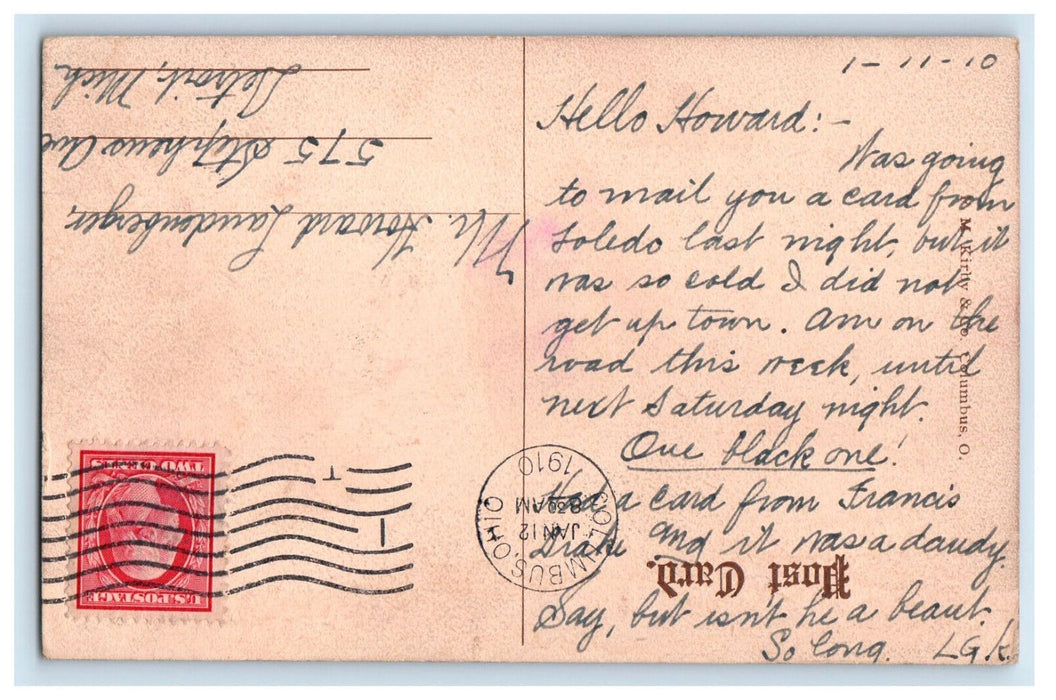 1-11-10
Hello Howard:-
Was going
to mail you a card from
Toledo last night, but it
was so cold I did not
get up town. Am on the
road this week, until
next Saturday night.
One black one!
Had a card from Francis
Drake and it was a dandy.
Say, but isn't he a beaut.
So long. LGK.
Mr. Howard Laudenberger,
575 Stephens Ave
Detroit, Mich.
Post Card.
M. Kirby & Co. Columbus, O.
COLUMBUS, OHIO
JAN 12
830 AM
1910
T
1
U.S. POSTAGE
TWO CENTS